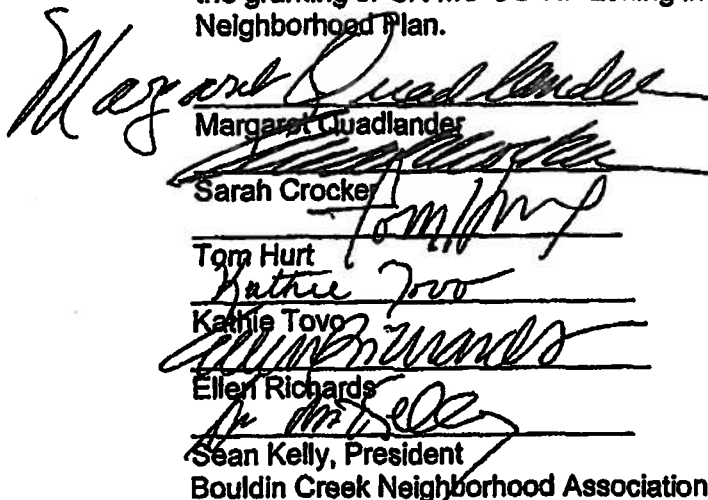 Neighborhood Plan.
Margaret Quadlander
Margaret Quadlander
Sarah Crocker
Tom Hurt
Tom Hurt
Kathie Tovo
Kathie Tovo
Ellen Richards
Ellen Richards
Sean Kelly, President
Bouldin Creek Neighborhood Association